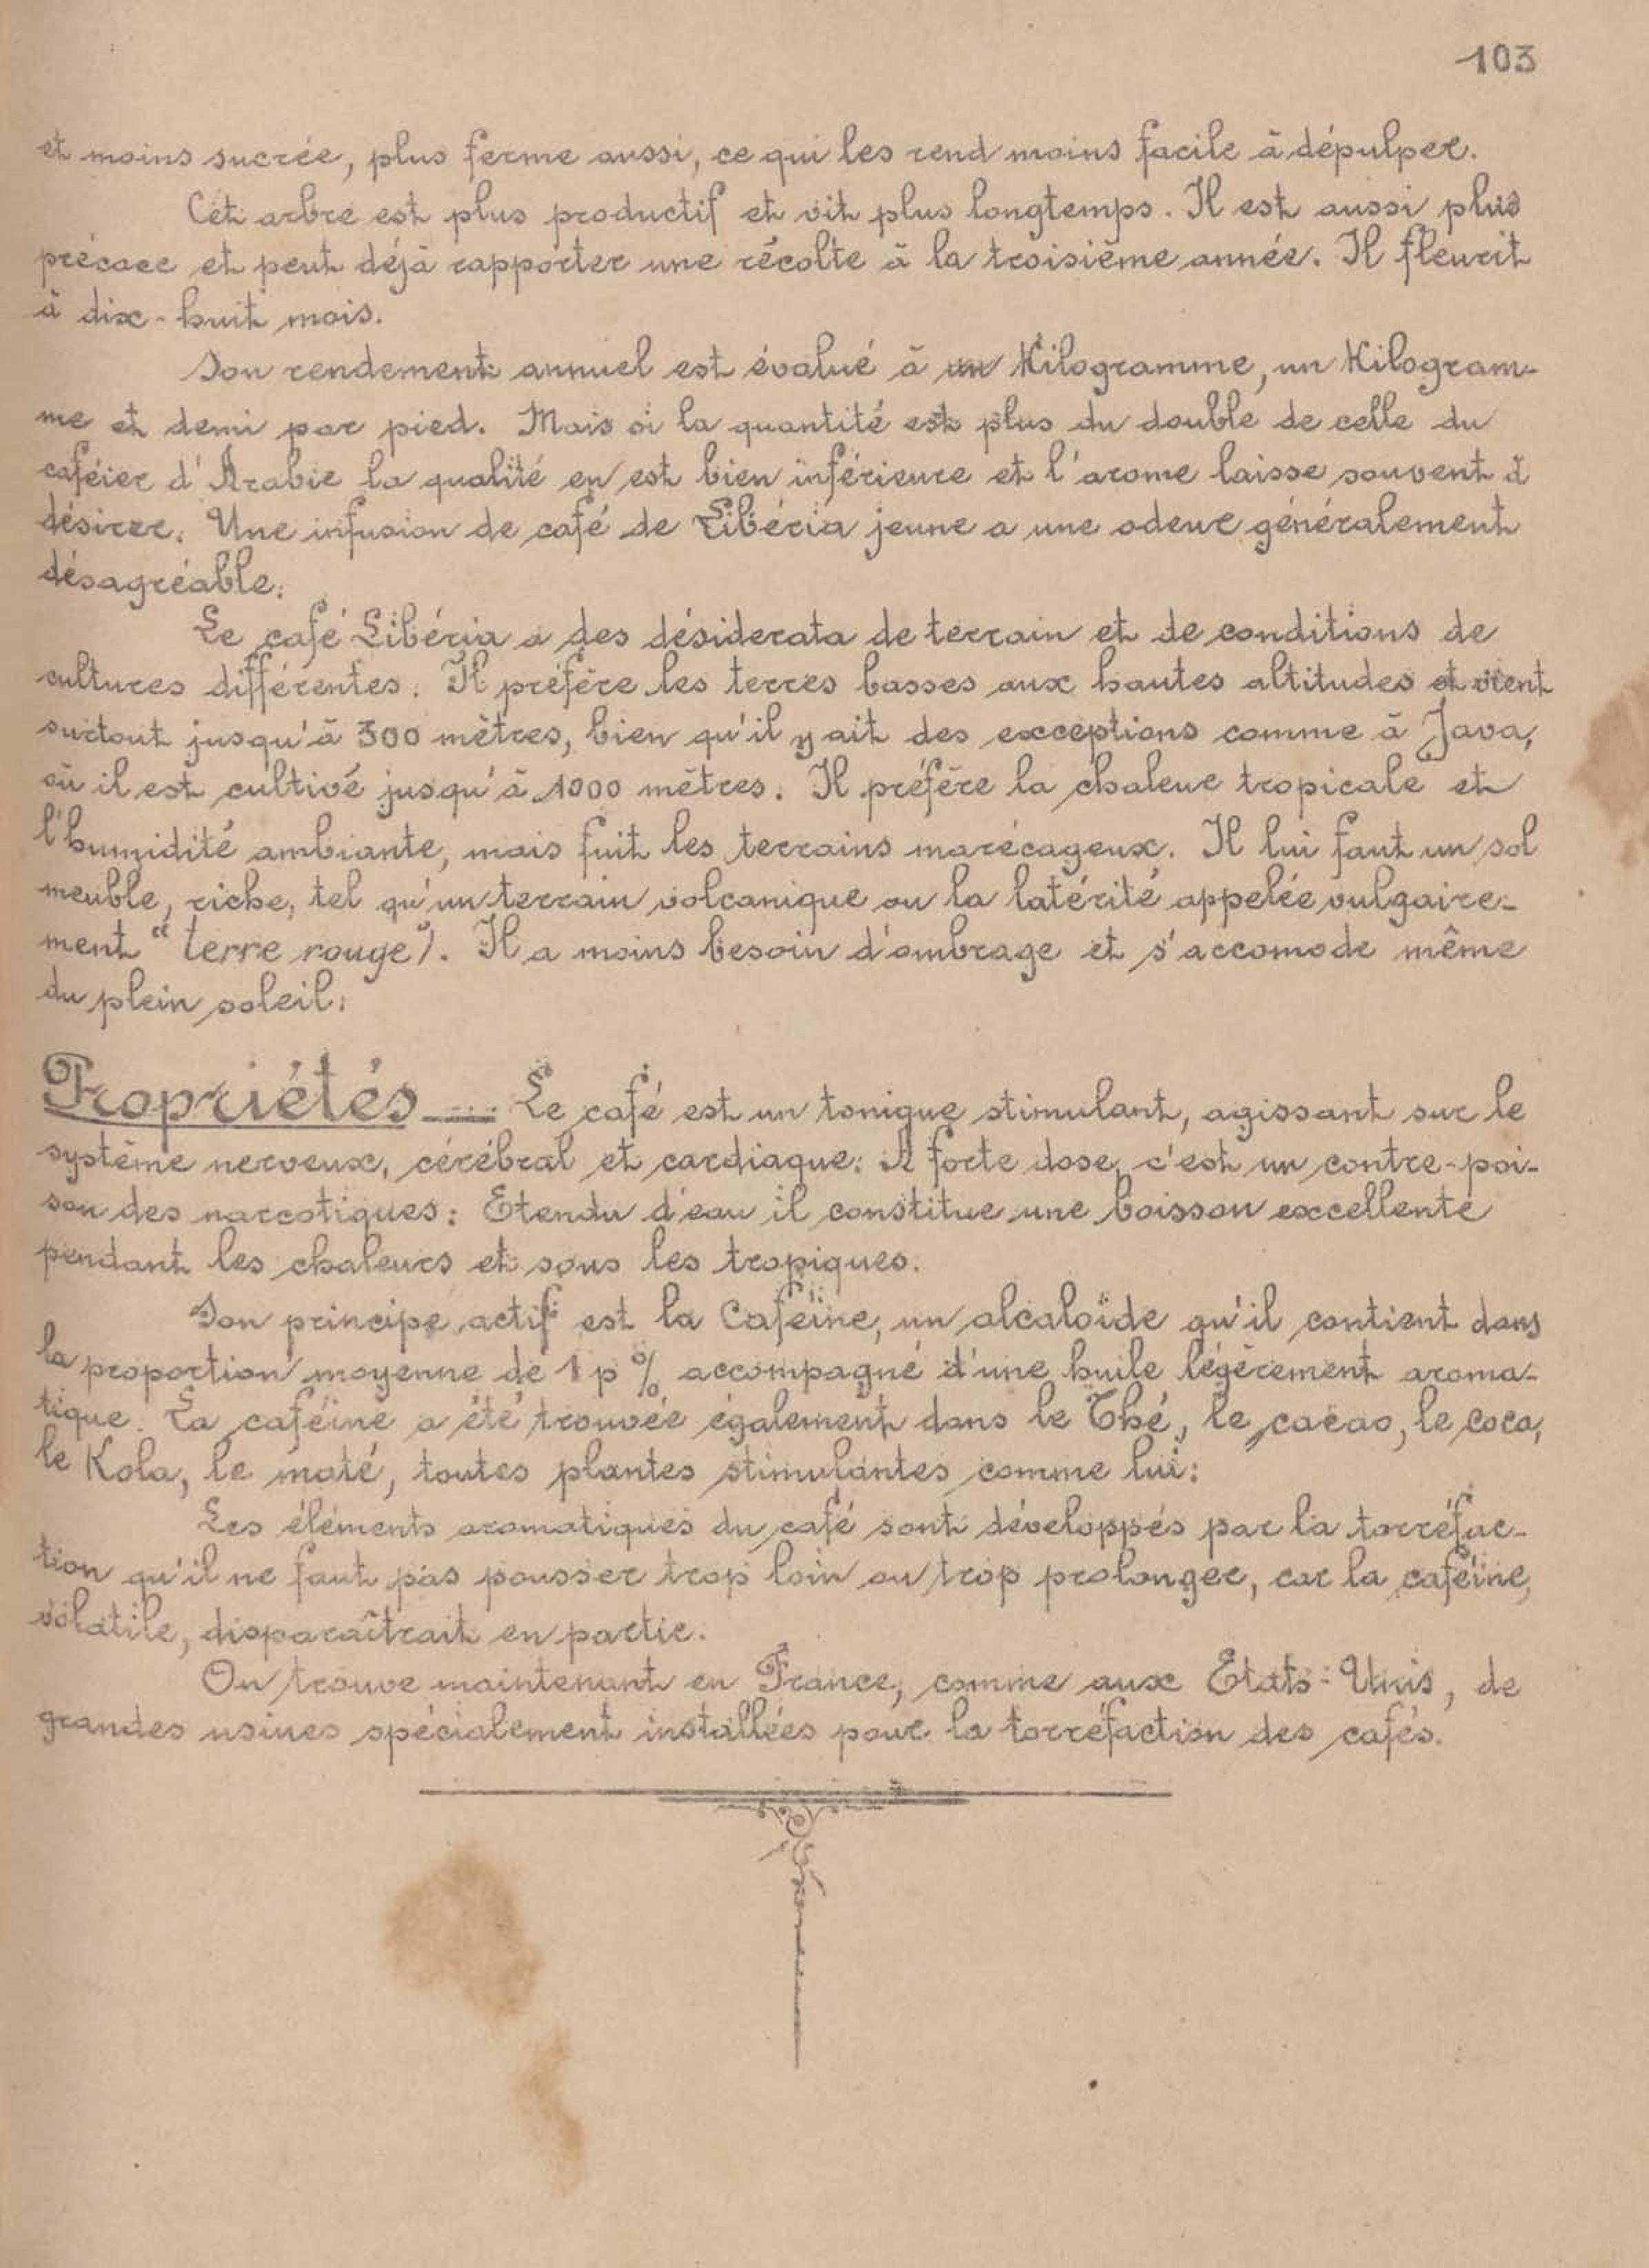 103
et moins sucrée, plus ferme aussi, ce qui les rend moins facile à dépulper.
Cet arbre est plus productif et vit plus longtemps. Il est aussi plus
précoce et peut déjà rapporter une récolte à la troisième année. Il fleurit
à dix-huit mois.
Son rendement annuel est évalué à un Kilogramme, un Kilogram-
me et demi par pied. Mais si la quantité est plus du double de celle du
caféier d'Arabie la qualité en est bien inférieure et l'arome laisse souvent à
désirer. Une infusion de café de Libéria jeune a une odeur généralement
désagréable.
Le café Libéria a des désiderata de terrain et de conditions de
cultures différentes. Il préfère les terres basses aux hautes altitudes et vient
surtout jusqu'à 300 mètres, bien qu'il y ait des exceptions comme à Java,
où il est cultivé jusqu'à 1000 mètres. Il préfère la chaleur tropicale et
l'humidité ambiante, mais fuit les terrains marécageux. Il lui faut un sol
meuble, riche, tel qu'un terrain volcanique ou la latérité appelée vulgaire-
ment "terre rouge". Il a moins besoin d'ombrage et s'accomode même
du plein soleil.
Propriétés — Le café est un tonique stimulant, agissant sur le
système nerveux, cérébral et cardiaque. A forte dose, c'est un contre-poi-
son des narcotiques. Etendu d'eau il constitue une boisson excellente
pendant les chaleurs et sous les tropiques.
Son principe actif est la Caféine, un alcaloïde qu'il contient dans
la proportion moyenne de 1 p % accompagné d'une huile légèrement aroma-
tique. La caféine a été trouvée également dans le Thé, le cacao, le coca,
le Kola, le maté, toutes plantes stimulantes comme lui.
Les éléments aromatiques du café sont développés par la torréfac-
tion qu'il ne faut pas pousser trop loin ou trop prolonger, car la caféine,
volatile, disparaîtrait en partie.
On trouve maintenant en France, comme aux Etats-Unis, de
grandes usines spécialement installées pour la torréfaction des cafés.